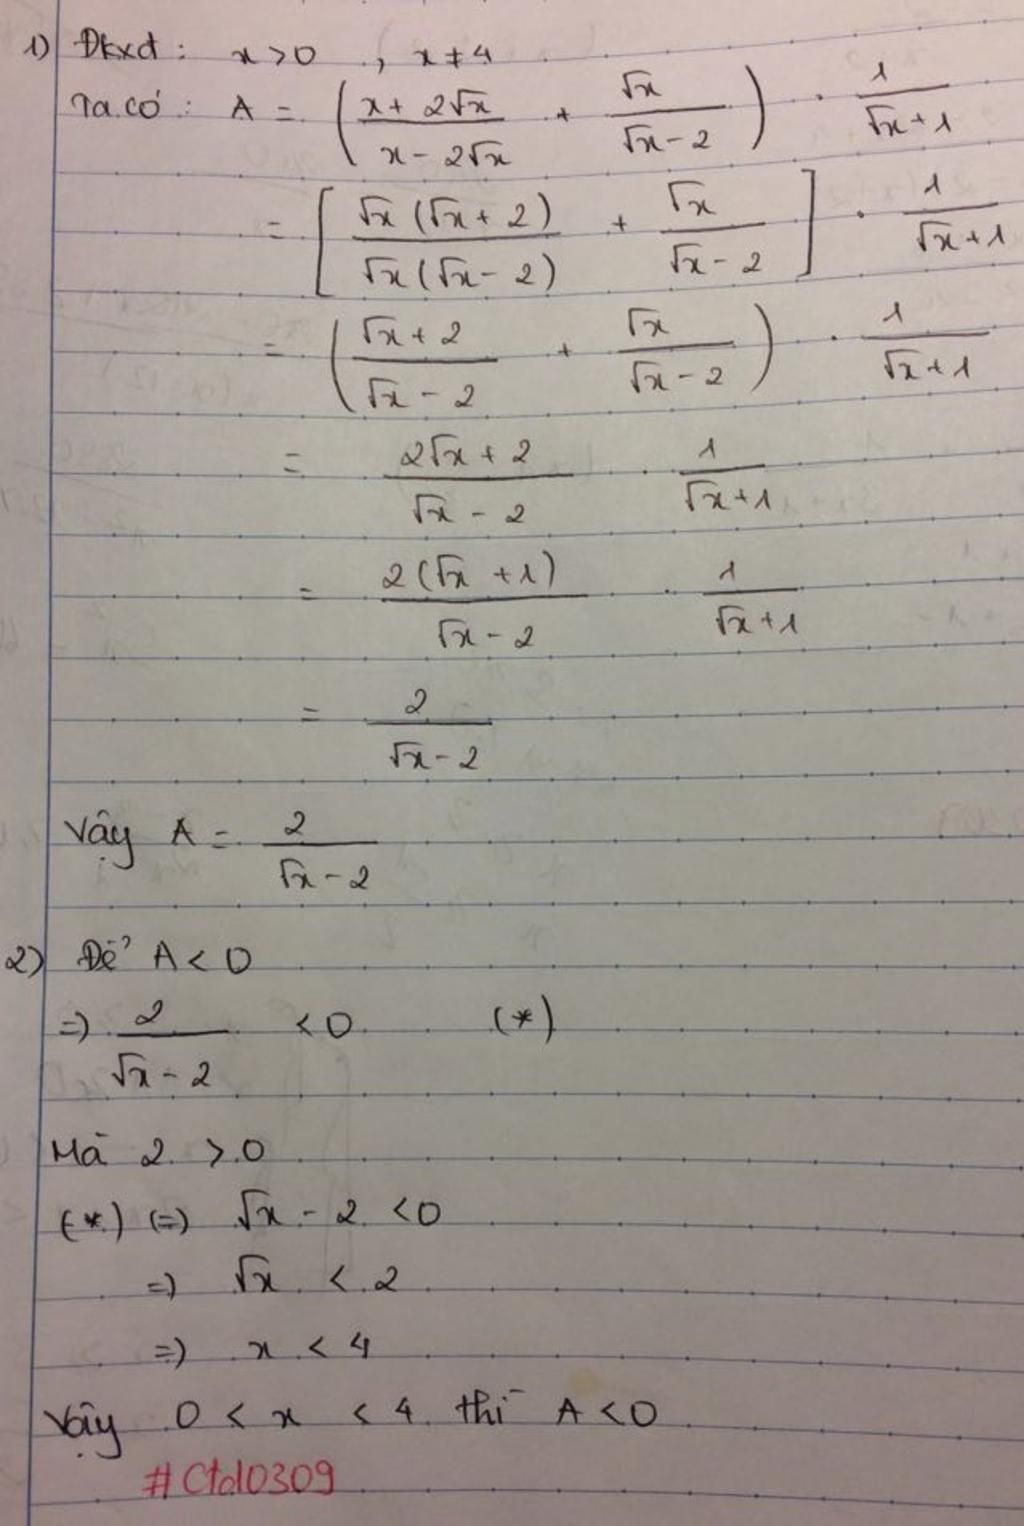 1) Đkxđ : x > 0 , x ≠ 4
Ta có : A = ( (x + 2√x)/(x - 2√x) + √x/(√x - 2) ) . 1/(√x + 1)
= [ √x (√x + 2)/√x (√x - 2) + √x/(√x - 2) ] . 1/(√x + 1)
= ( (√x + 2)/(√x - 2) + √x/(√x - 2) ) . 1/(√x + 1)
= (2√x + 2)/(√x - 2) . 1/(√x + 1)
= 2(√x + 1)/(√x - 2) . 1/(√x + 1)
= 2/(√x - 2)
Vậy A = 2/(√x - 2)
2) Để A < 0
=) 2/(√x - 2) < 0 (*)
Mà 2 > 0
(*) (=) √x - 2 < 0
=) √x < 2
=) x < 4
Vậy 0 < x < 4 thì A < 0
#Ctd0309